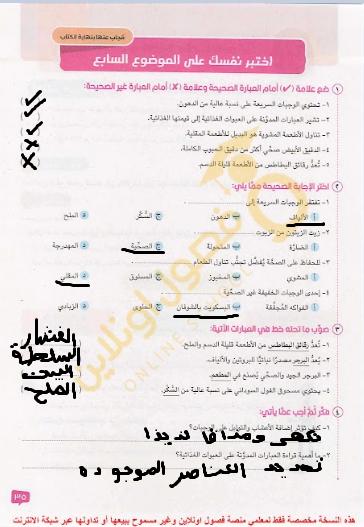 مُجاب عنها بنهاية الكتاب
اختبر نفسك على الموضوع السابع
١ ضع علامة (✓) أمام العبارة الصحيحة وعلامة (✗) أمام العبارة غير الصحيحة:
١- تحتوي الوجبات السريعة على نسبة عالية من الدهون.
٢- تشير العبارات المدوَّنة على العبوات الغذائية إلى قيمتها الغذائية.
٣- تناول الأطعمة المشوية هو البديل للأطعمة المقلية.
٤- الدقيق الأبيض صحِّي أكثر من دقيق الحبوب الكاملة.
٥- تُعدُّ رقائق البطاطس من الأطعمة قليلة الدسم.
٢ اختر الإجابة الصحيحة ممَّا يلي:
١- تفتقر الوجبات السريعة إلى
أ الألياف ب الدهون ج السُّكَّر د الملح
٢- زيت الزيتون من الزيوت
أ الضارَّة ب المتحولة ج الصحِّية د المهدرجة
٣- للحفاظ على الصحَّة يُفضَّل تجنُّب تناول الطعام
أ المشوي ب المخبوز ج المسلوق د المقلي
٤- إحدى الوجبات الخفيفة غير الصحِّية
أ الفواكه المُجفَّفة ب البسكويت بالشوفان ج الحلوى د الزبادي
٣ صوِّب ما تحته خط في العبارات الآتية:
١- تُعدُّ رقائق البطاطس من الأطعمة قليلة الدسم والملح.
٢- تُعدُّ البرجر مصدرًا نباتيًّا للبروتين والألياف.
٣- البرجر الجيد والصحِّي يُصنع في المطعم.
٤- يحتوي مسحوق الفول السوداني على نسبة عالية من السُّكَّر.
البيت
الملح
٤ فكِّر ثُمَّ أجب عمَّا يأتي:
١- كيف تؤثر إضافة الأعشاب والتوابل على الوجبات؟
نكهى ومذاقا لذيذا
٢- ما أهمية قراءة العبارات المدوَّنة على العبوات الغذائية؟
تحديد العناصر الموجوده
٣٥
هذه النسخة مخصصة فقط لمعلمي منصة فصول اونلاين وغير مسموح ببيعها أو تداولها عبر شبكة الانترنت